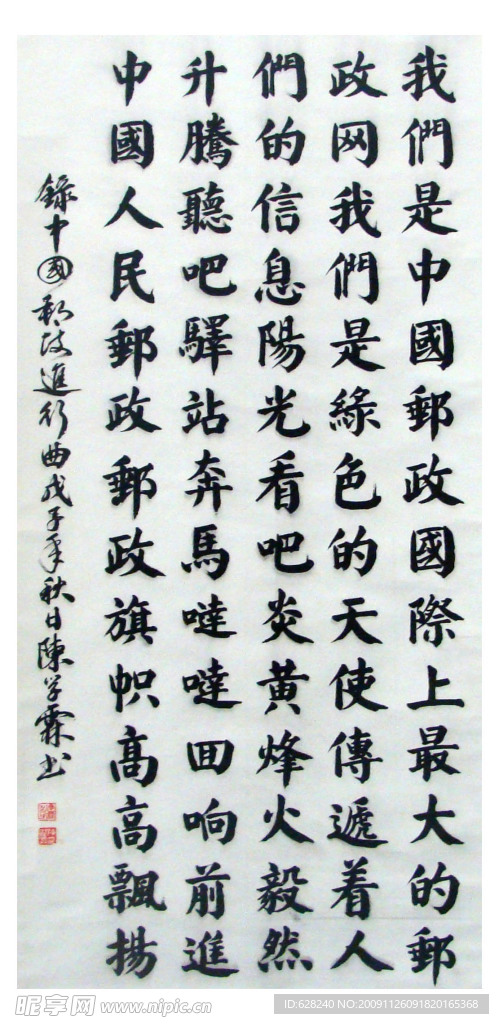 我們是中國郵政國際上最大的郵
政网我們是綠色的天使傳遞着人
們的信息陽光看吧炎黃烽火毅然
升騰聽吧驛站奔馬噠噠回响前進
中國人民郵政郵政旗帜高高飄揚
錄中國郵政進行曲戊子年秋日陳学霖书
昵享网 www.nipic.cn
ID:628240 NO:20091126091820165368